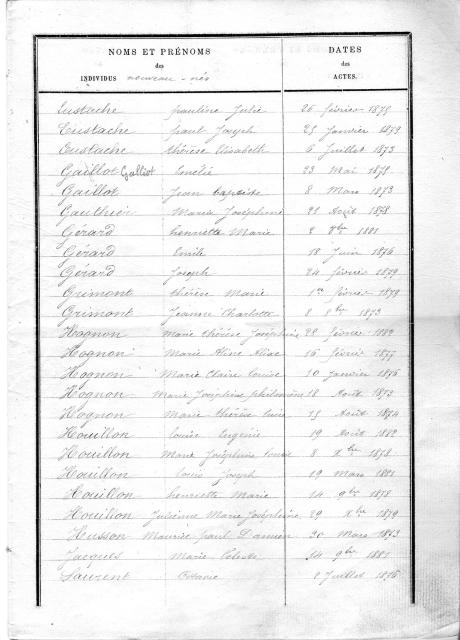 NOMS ET PRÉNOMS
des
INDIVIDUS nouveau-nés
DATES
des
ACTES.
Eustache pauline Julie 26 février 1875
Eustache paul Joseph 25 Janvier 1879
Eustache thérèse Elisabeth 6 Juillet 1873
Gaillot Galliot Emélie 23 Mai 1878
Gaillot Jean baptiste 8 Mars 1873
Gauthier Maria Joséphine 21 Août 1878
Gérard henriette Marie 2 8bre 1881
Gérard Emile 18 Juin 1876
Gérard Joseph 24 février 1879
Grimont thérèse Marie 1er février 1879
Grimont Jeanne Charlotte 8 8bre 1873
Hognon Marie thérèse Joséphine 22 février 1882
Hognon Marie Aline 16 février 1877
Hognon Marie Claire Louise 10 Janvier 1876
Hognon Marie Joséphine philomène 18 Août 1873
Hognon Marie thérèse 15 Août 1874
Houillon Louise Eugénie 19 Août 1882
Houillon Marie Joséphine Louise 8 Xbre 1878
Houillon Louis Joseph 19 Mars 1881
Houillon henriette Marie 14 9bre 1878
Houillon Julienne Marie Joséphine 29 Xbre 1879
Husson Maurice paul Damien 30 Mars 1873
Jacques Marie Céleste 14 9bre 1881
Laurent Octavie 2 Juillet 1876